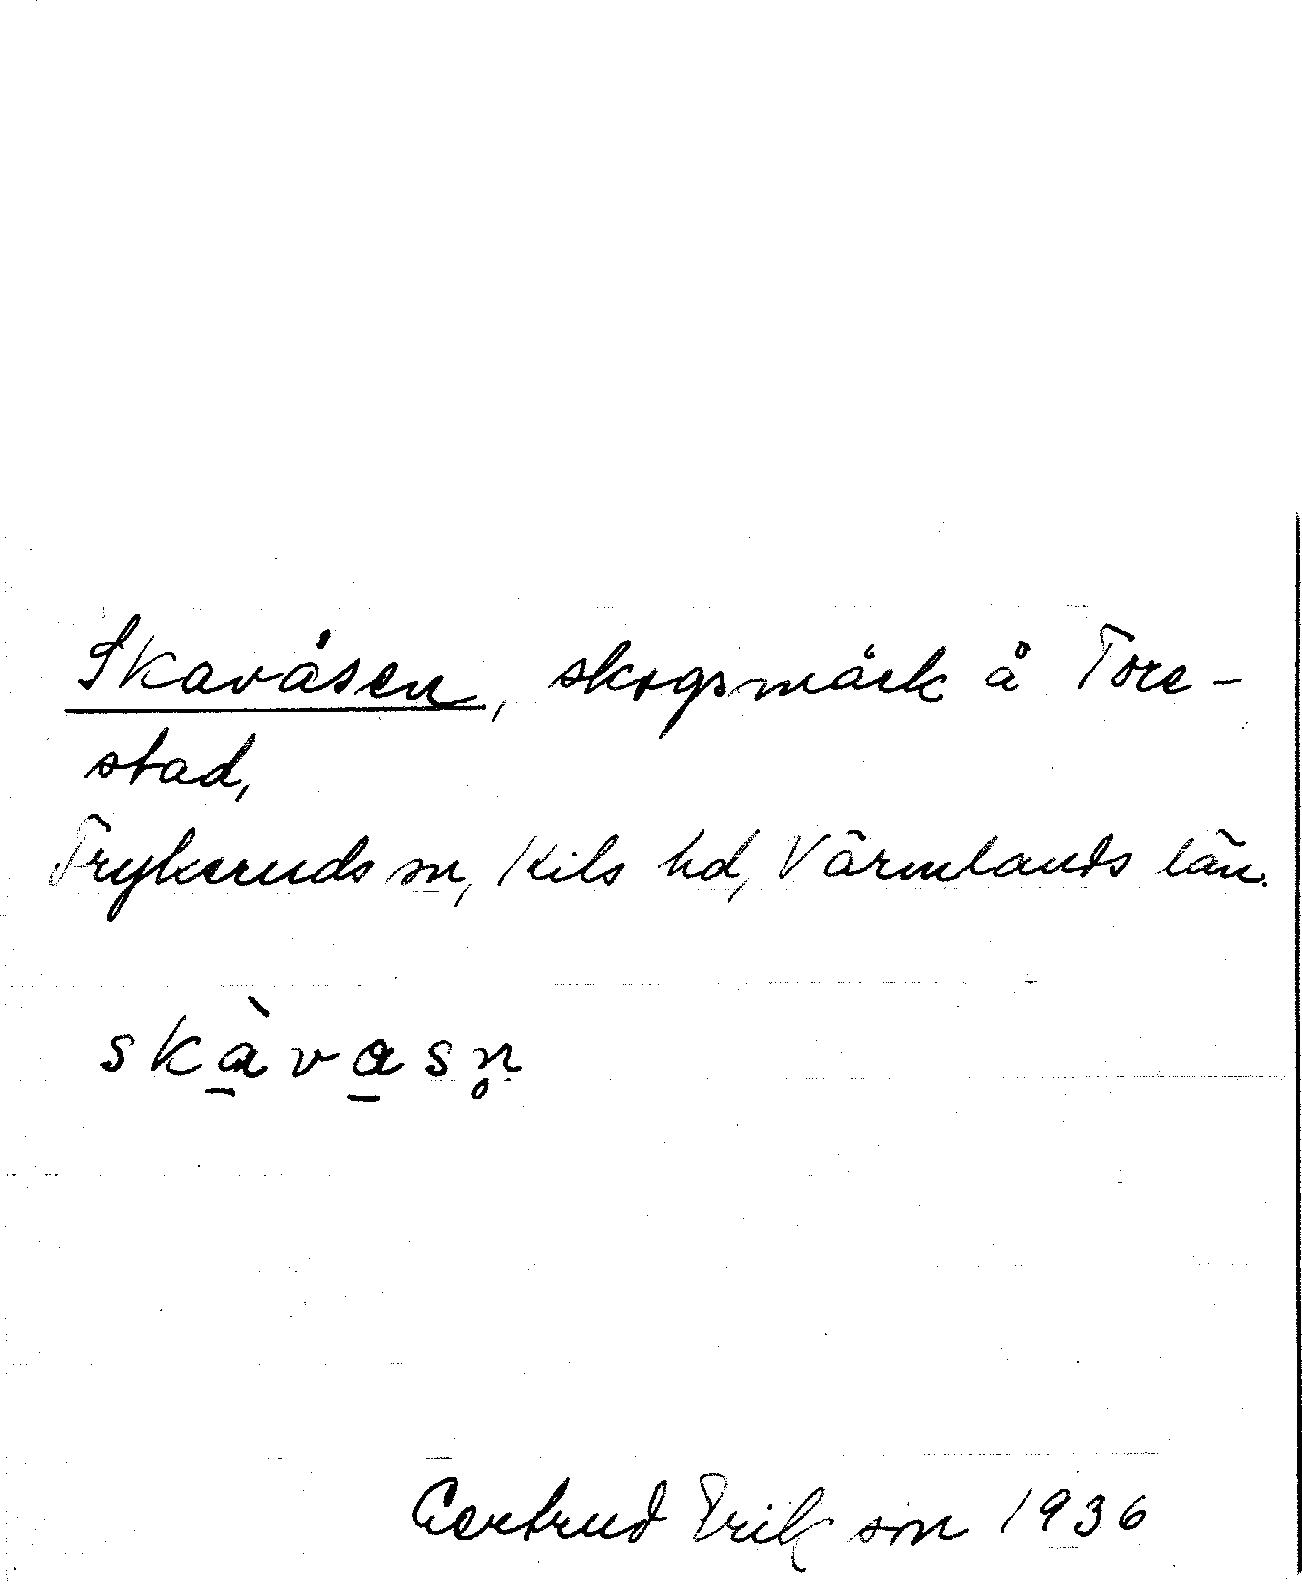 Skavåsen, skogsmärk å Tore-
stad,
Frykeruds sn, Kils hd, Värmlands län.
skàvasn̥
Gertrud Erikson 1936